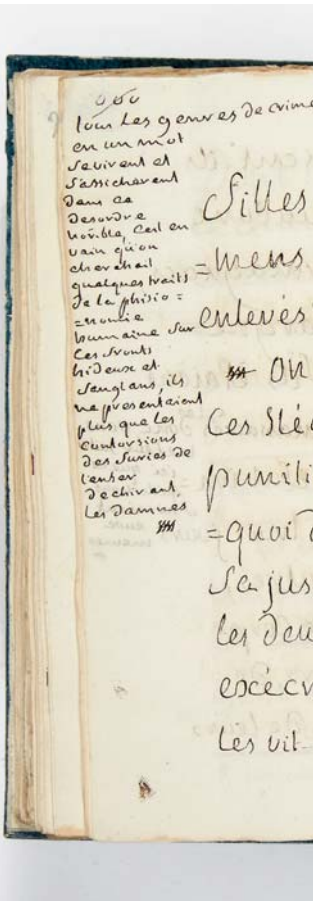 tous Les genres de crime
en un mot
se virent et
s'afficherent
dans ce
desordre
horrible, C'est en
vain qu'on
cherchait
quelques traits
de la phisio =
=nomie
humaine sur
Ces fronts
hideux et
sanglans, ils
ne presentaient
plus que Les
Contorsions
des furies de
l'enfer
dechirant
Les damnés
filles
=mens
enlevés
On
Ces
puniti
=quoi
Sa jus
les deu
exécr
Les vit